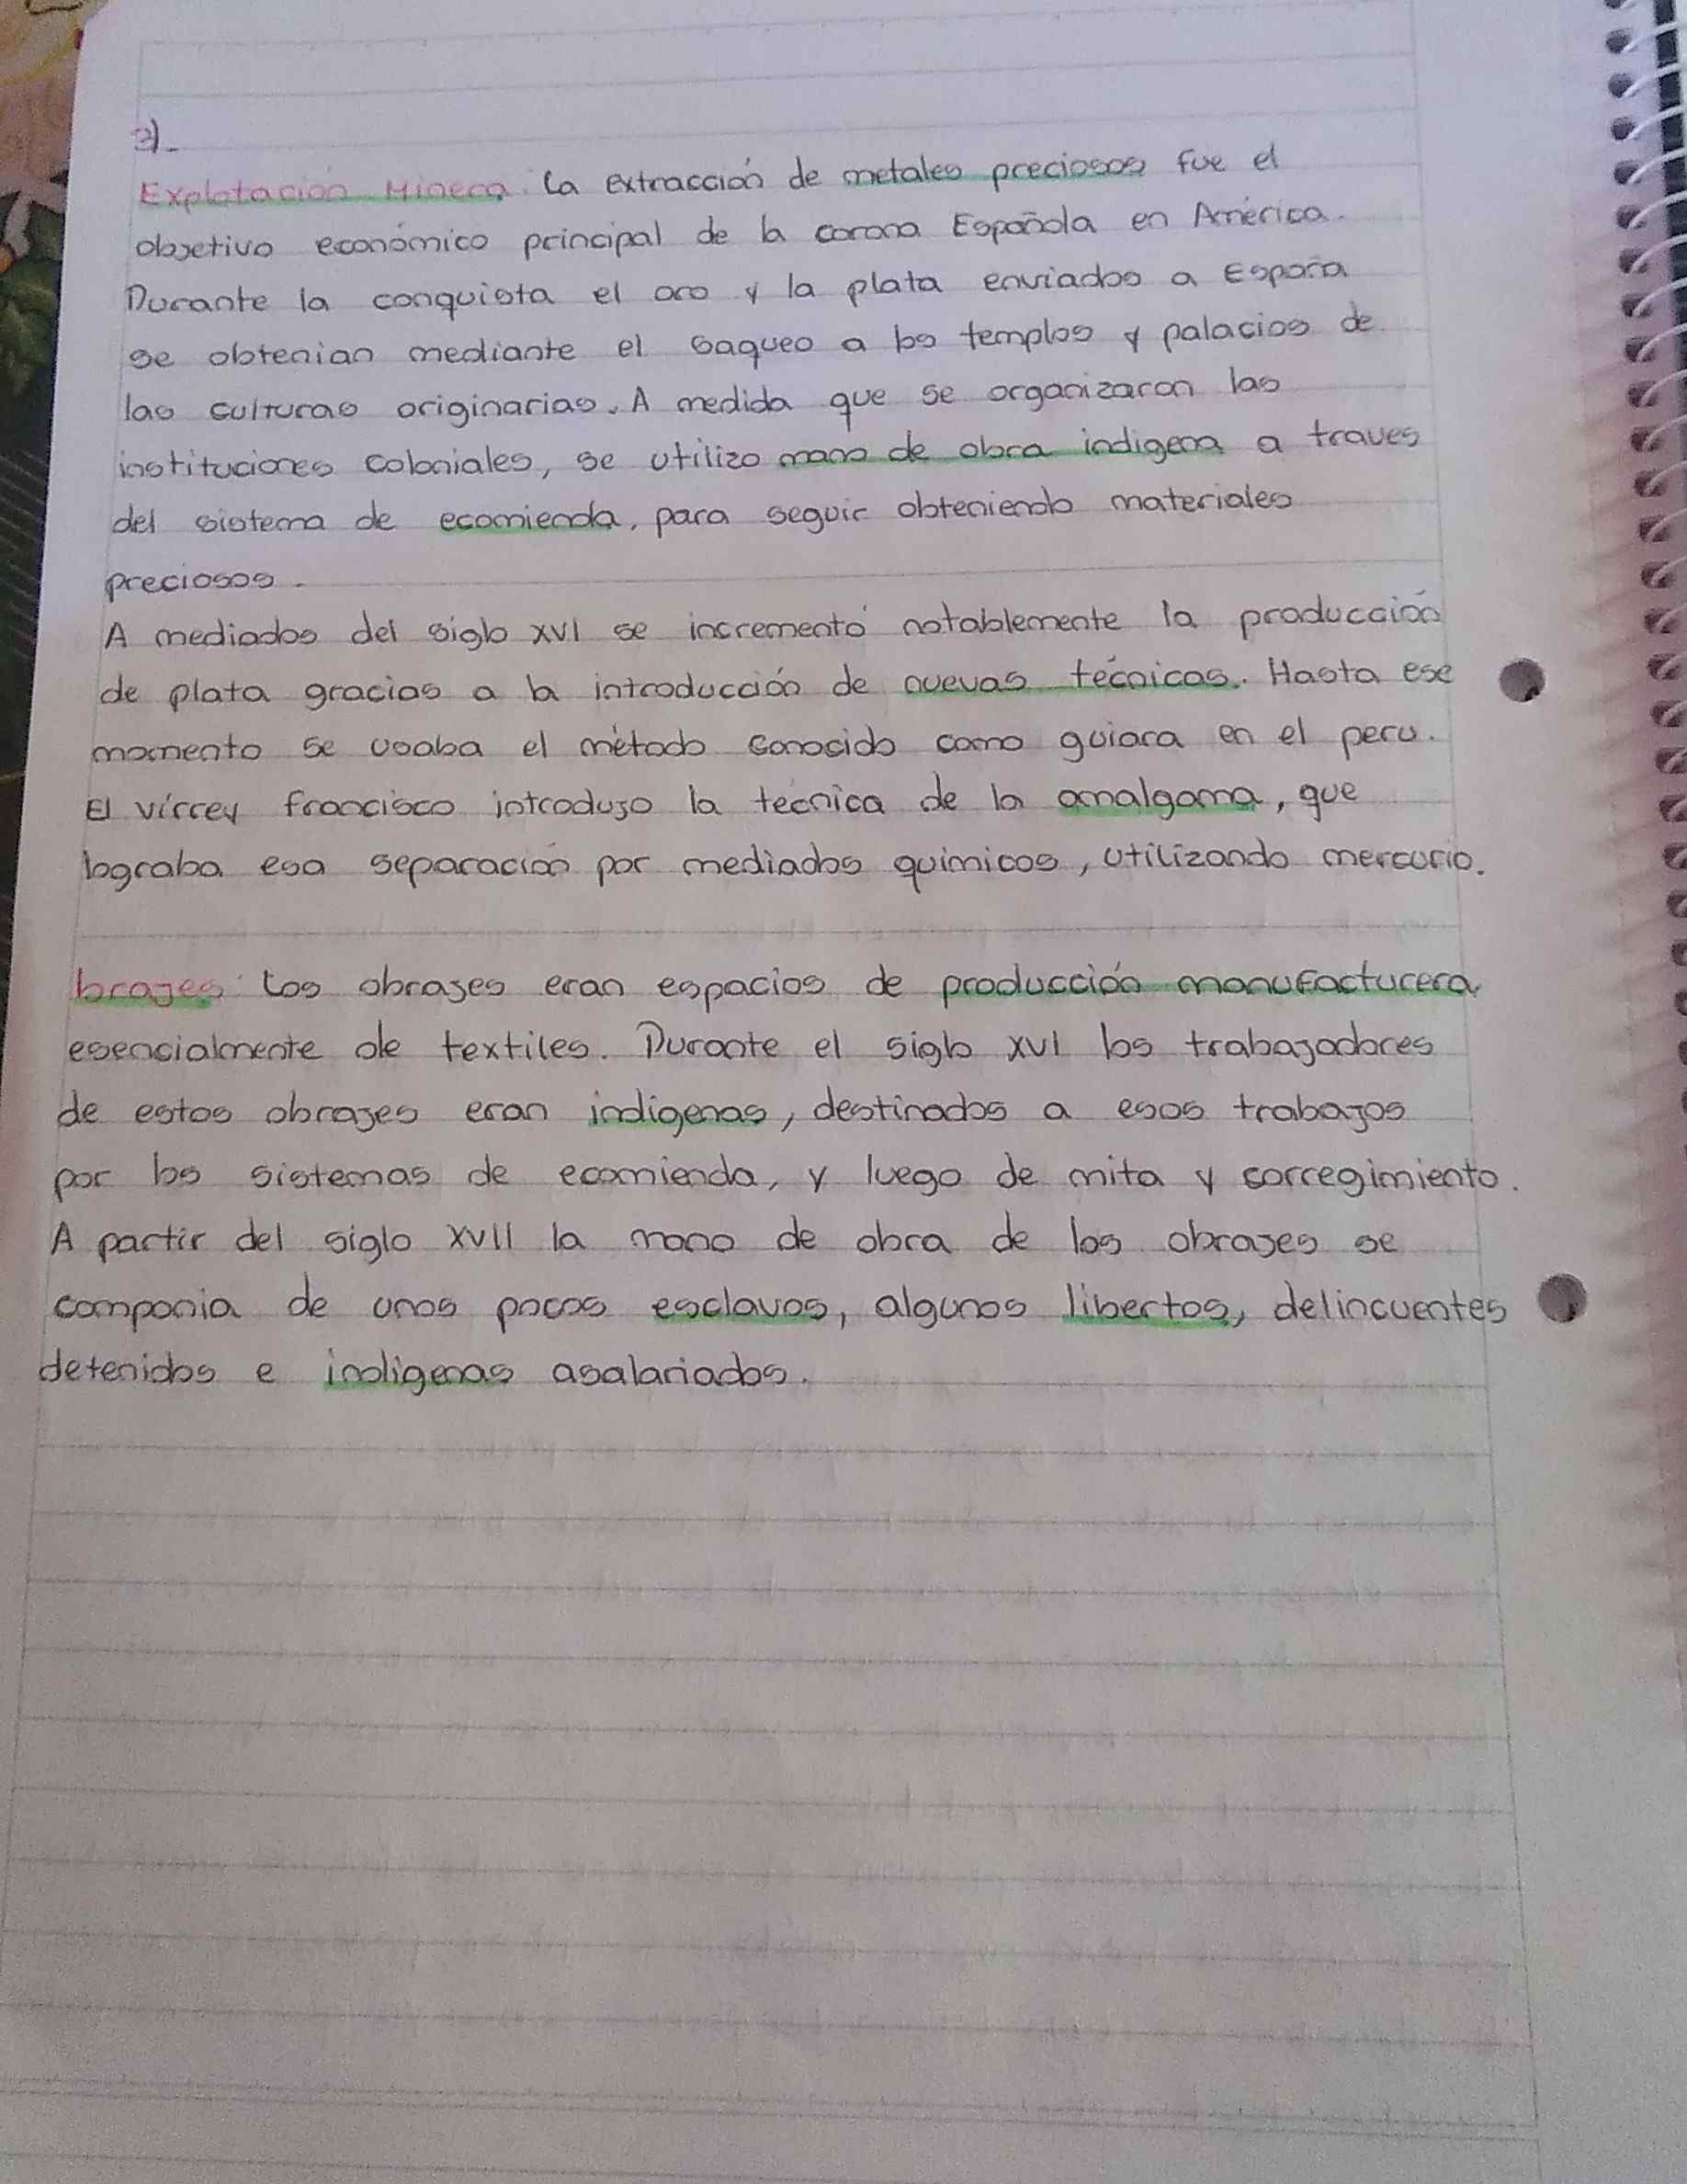 3)-
Explotación Minera. La extracción de metales preciosos fue el
objetivo económico principal de la corona Española en América.
Durante la conquista el oro y la plata enviados a España
se obtenian mediante el saqueo a los templos y palacios de
las culturas originarias. A medida que se organizaron las
instituciones coloniales, se utilizo mano de obra indigena a traves
del sistema de ecomienda, para seguir obteniendo materiales
preciosos.
A mediados del siglo XVI se incrementó notablemente la producción
de plata gracias a la introducción de nuevas técnicas. Hasta ese
momento se usaba el método conocido como guiara en el peru.
El virrey francisco introdujo la tecnica de la amalgama, que
lograba esa separación por mediados quimicos, utilizando mercurio.
brajes: Los obrajes eran espacios de producción manufacturera
esencialmente de textiles. Durante el siglo XVI los trabajadores
de estos obrajes eran indigenas, destinados a esos trabajos
por los sistemas de ecomienda, y luego de mita y corregimiento.
A partir del siglo XVII la mano de obra de los obrajes se
componia de unos pocos esclavos, algunos libertos, delincuentes
detenidos e indigenas asalariados.